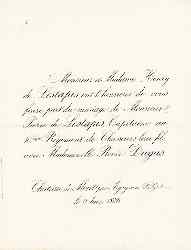 Monsieur et Madame Henry
de Lestapis ont l'honneur de vous
faire part du mariage de Monsieur
de Lestapis, Capitaine au
Régiment de Chasseurs, leur fils,
avec Mademoiselle Dugas
Château de Mont par
le